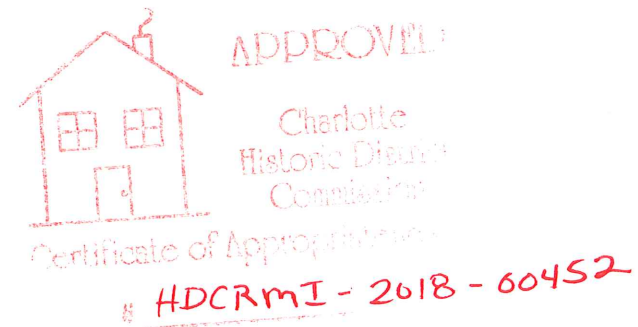 APPROVED
Charlotte
Historic District
Commission
Certificate of Appropriateness
# HDCRMI - 2018 - 00452